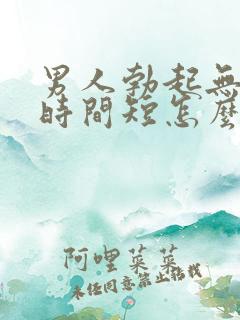 男人勃起無
時間短怎麼
阿哩菜菜
未经同意禁止搭载